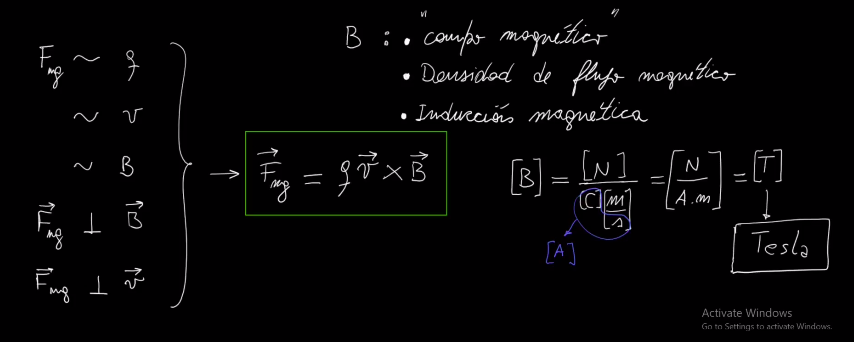 F_mg ~ q
~ v
~ B
F⃗_mg ⊥ B⃗
F⃗_mg ⊥ v⃗
→ F⃗_mg = q v⃗ × B⃗
B : • "campo magnético"
• Densidad de flujo magnético
• Inducción magnética
[B] = [N] / [C][m/s] = [N / A.m] = [T]
[A]
Tesla
Activate Windows
Go to Settings to activate Windows.